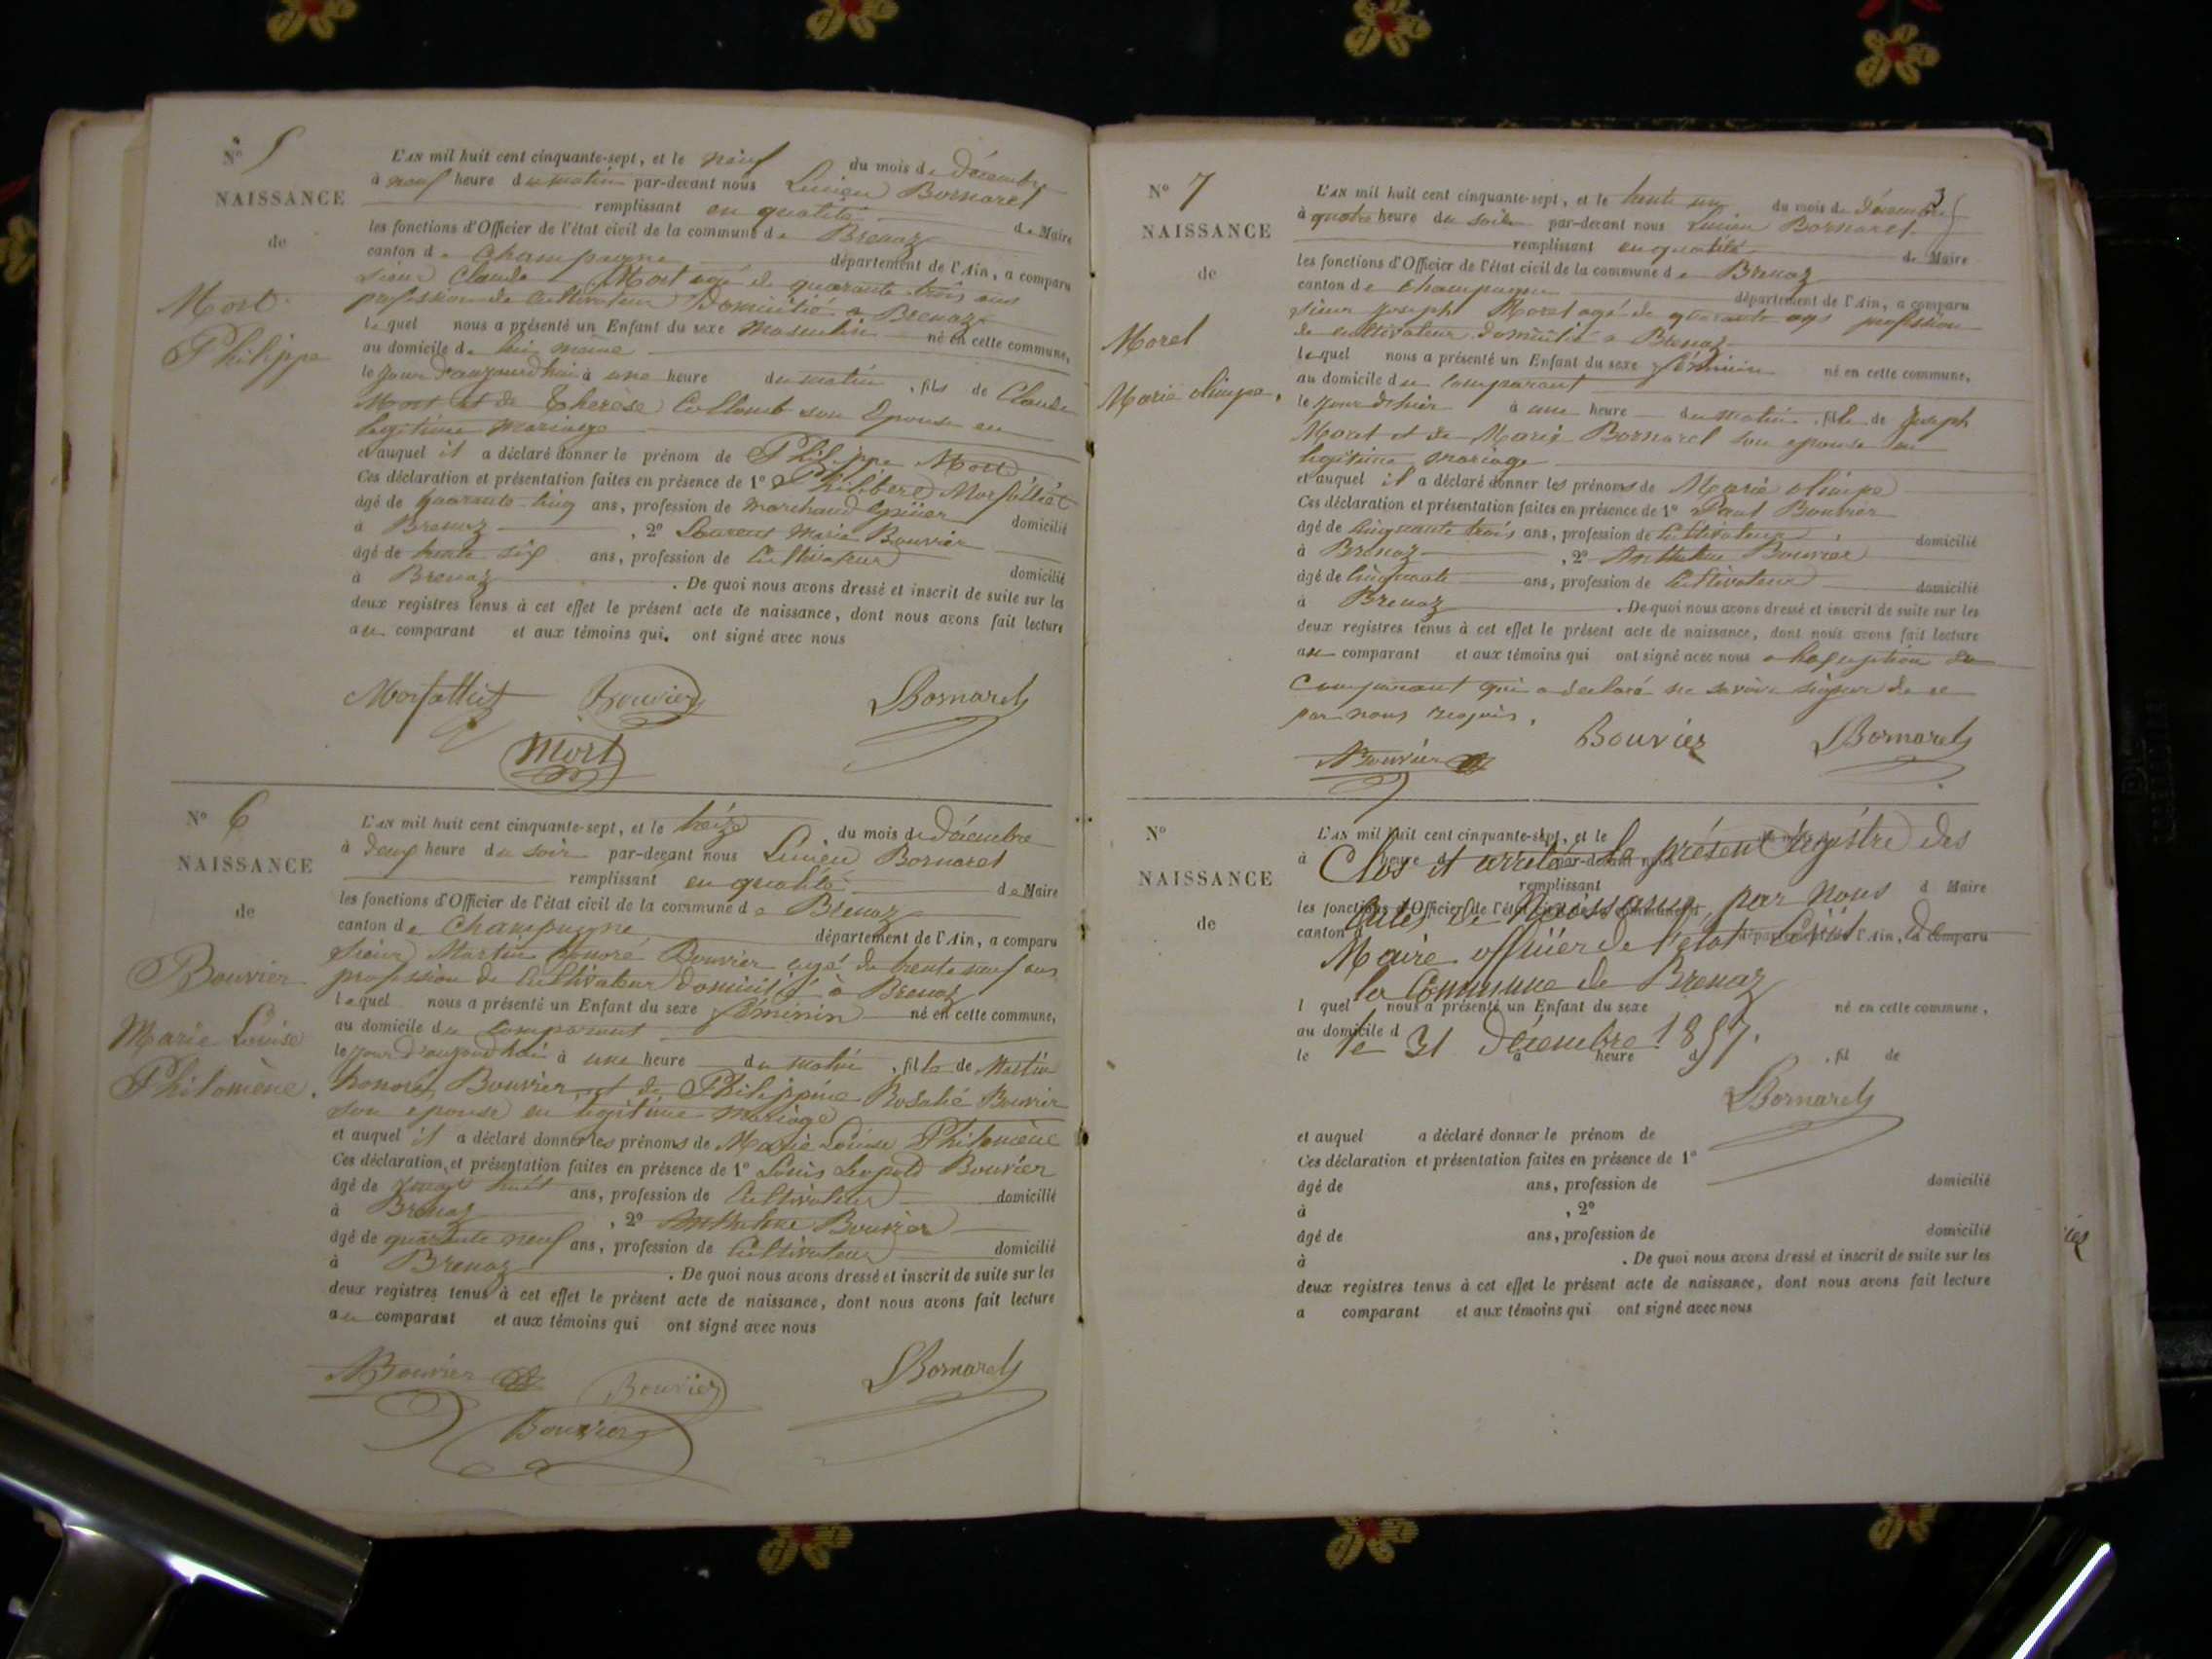 N° 5
NAISSANCE
de
Mort
Philippe
L'AN mil huit cent cinquante-sept, et le neuf du mois de Décembre
à neuf heure du matin par-devant nous Lucien Bornarel
remplissant en qualité de Maire
les fonctions d'Officier de l'état civil de la commune de Brenaz
canton de Champagne département de l'Ain, a comparu
sieur Claude Mort agé de quarante trois ans
profession de Cultivateur Domicilié a Brenaz
lequel nous a présenté un Enfant du sexe masculin né en cette commune,
au domicile de lui même
le jour d'aujourd'hui à une heure du matin, fils de Claude
Mort et de Therese Collomb son Epouse en
legitime mariage
et auquel il a déclaré donner le prénom de Philippe Mort
Ces déclaration et présentation faites en présence de 1° Philibert Morfalliet
âgé de quarante-cinq ans, profession de marchand Epicier domicilié
à Brenaz, 2° Laurent Marie Bouvier
âgé de trente six ans, profession de Cultivateur domicilié
à Brenaz. De quoi nous avons dressé et inscrit de suite sur les
deux registres tenus à cet effet le présent acte de naissance, dont nous avons fait lecture
au comparant et aux témoins qui. ont signé avec nous
Morfalliet Bouvier LBornarel
Mort
N° 6
NAISSANCE
de
Bouvier
Marie Louise
Philomène.
L'AN mil huit cent cinquante-sept, et le treize du mois de Décembre
à deux heure du soir par-devant nous Lucien Bornarel
remplissant en qualité de Maire
les fonctions d'Officier de l'état civil de la commune de Brenaz
canton de Champagne département de l'Ain, a comparu
sieur Martin honoré Bouvier agé de trente neuf ans
profession de Cultivateur domicilié à Brenaz
lequel nous a présenté un Enfant du sexe féminin né en cette commune,
au domicile du comparant
le jour d'aujourd'hui à une heure du matin, fille de Martin
honoré Bouvier et de Philippine Rosalie Bouvier
son epouse en legitime mariage
et auquel il a déclaré donner les prénoms de Marie Louise Philomène
Ces déclaration et présentation faites en présence de 1° Louis Leopold Bouvier
âgé de huit ans, profession de Cultivateur domicilié
à Brenaz, 2° Anthelme Bouvier
âgé de quarante neuf ans, profession de Cultivateur domicilié
à Brenaz. De quoi nous avons dressé et inscrit de suite sur les
deux registres tenus à cet effet le présent acte de naissance, dont nous avons fait lecture
au comparant et aux témoins qui ont signé avec nous
Bouvier Bouvier LBornarel
Bouvier
3
N° 7
NAISSANCE
de
Morel
Marie olimpe.
L'AN mil huit cent cinquante-sept, et le trente un du mois de Décembre
à quatre heure du soir par-devant nous Lucien Bornarel
remplissant en qualité de Maire
les fonctions d'Officier de l'état civil de la commune de Brenaz
canton de Champagne département de l'Ain, a comparu
sieur Joseph Morel agé de quarante ans profession
de cultivateur domicilié a Brenaz
lequel nous a présenté un Enfant du sexe féminin né en cette commune,
au domicile du comparant
le jour d'hier à une heure du matin, fille de Joseph
Morel et de Marie Bornarel son epouse en
legitime mariage
et auquel il a déclaré donner les prénoms de Marie olimpe
Ces déclaration et présentation faites en présence de 1° Paul Bouvier
âgé de cinquante trois ans, profession de Cultivateur domicilié
à Brenaz, 2° Anthelme Bouvier
âgé de cinquante ans, profession de Cultivateur domicilié
à Brenaz. De quoi nous avons dressé et inscrit de suite sur les
deux registres tenus à cet effet le présent acte de naissance, dont nous avons fait lecture
au comparant et aux témoins qui ont signé avec nous a l'exception du
comparant qui a declaré ne savoir signer de ce
par nous requis.
Bouvier Bouvier LBornarel
N°
NAISSANCE
de
L'AN mil huit cent cinquante-sept, et le
à heure d par-devant nous
Clos et arrêté le présent régistre des
remplissant d Maire
les fonctions d'Officier de l'état civil de la commune d
Actes de Naissance, par Nous
canton d département de l'Ain, a comparu
Maire officier de l'état Civil de
la Commune de Brenaz
l quel nous a présenté un Enfant du sexe né en cette commune,
au domicile d
le 31 Décembre 1857.
le à heure d, fil de
LBornarel
et auquel a déclaré donner le prénom de
Ces déclaration et présentation faites en présence de 1°
âgé de ans, profession de domicilié
à, 2°
âgé de ans, profession de domicilié
à. De quoi nous avons dressé et inscrit de suite sur les
deux registres tenus à cet effet le présent acte de naissance, dont nous avons fait lecture
a comparant et aux témoins qui ont signé avec nous